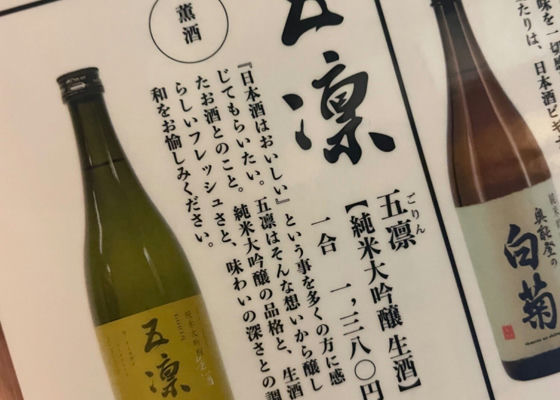 味を一切
たりは、日本酒ビギナ
五凛
五凛
ごりん
【純米大吟醸 生酒】
一合 一,三八〇円
『日本酒はおいしい』という事を多くの方に感
じてもらいたい。五凛はそんな想いから醸し
たお酒とのこと。純米大吟醸の品格と、生酒
らしいフレッシュさと、味わいの深さとの調
和をお愉しみください。
薫酒
五凛
奥能登の
白菊